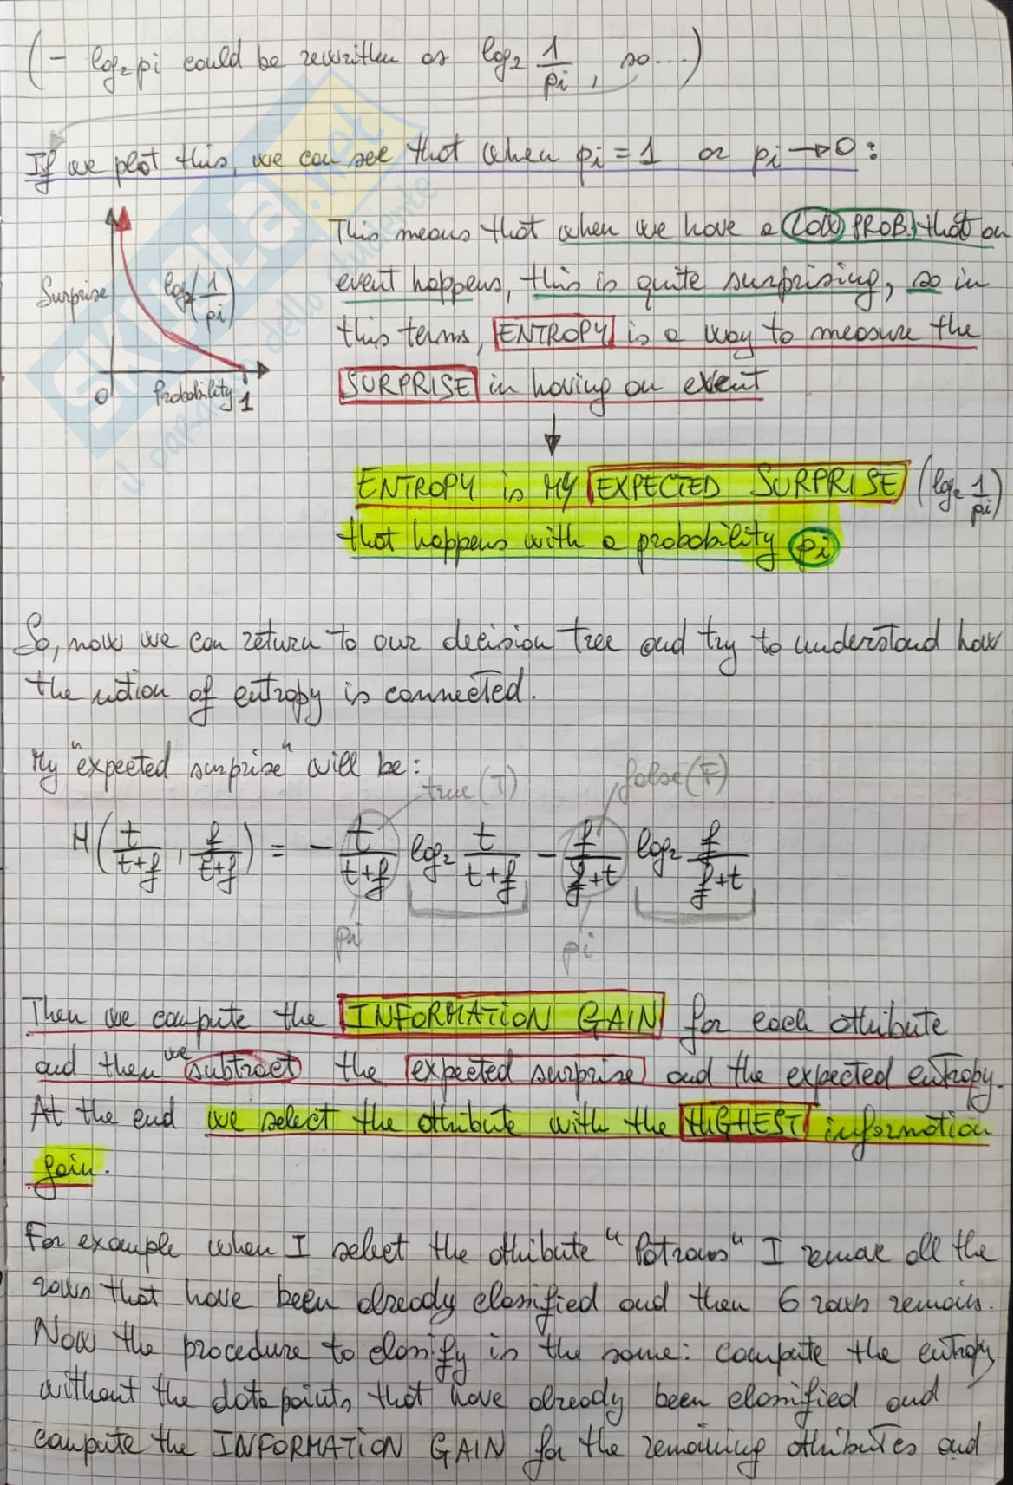 (- log₂pi could be rewritten as log₂ 1/pi, so...)
If we plot this, we can see that when pi = 1 or pi → 0:
Surprise
log₂(1/pi)
0
Probability
1
This means that when we have a LOW PROB. that an
event happens, this is quite surprising, so in
this terms, ENTROPY is a way to measure the
SURPRISE in having an event
ENTROPY is MY EXPECTED SURPRISE (log₂ 1/pi)
that happens with a probability pi
So, now we can return to our decision tree and try to understand how
the notion of entropy is connected.
My "expected surprise" will be:
true (T)
false (F)
H(t/t+f, f/t+f) = - t/t+f log₂ t/t+f - f/f+t log₂ f/f+t
pi
pi
Then we compute the INFORMATION GAIN for each attribute
and then we subtract the expected surprise and the expected entropy.
At the end we select the attribute with the HIGHEST information
gain.
For example when I select the attribute "Patrons" I remove all the
rows that have been already classified and then 6 rows remains.
Now the procedure to classify is the same: compute the entropy
without the data points that have already been classified and
compute the INFORMATION GAIN for the remaining attributes and
SKUOLA.net